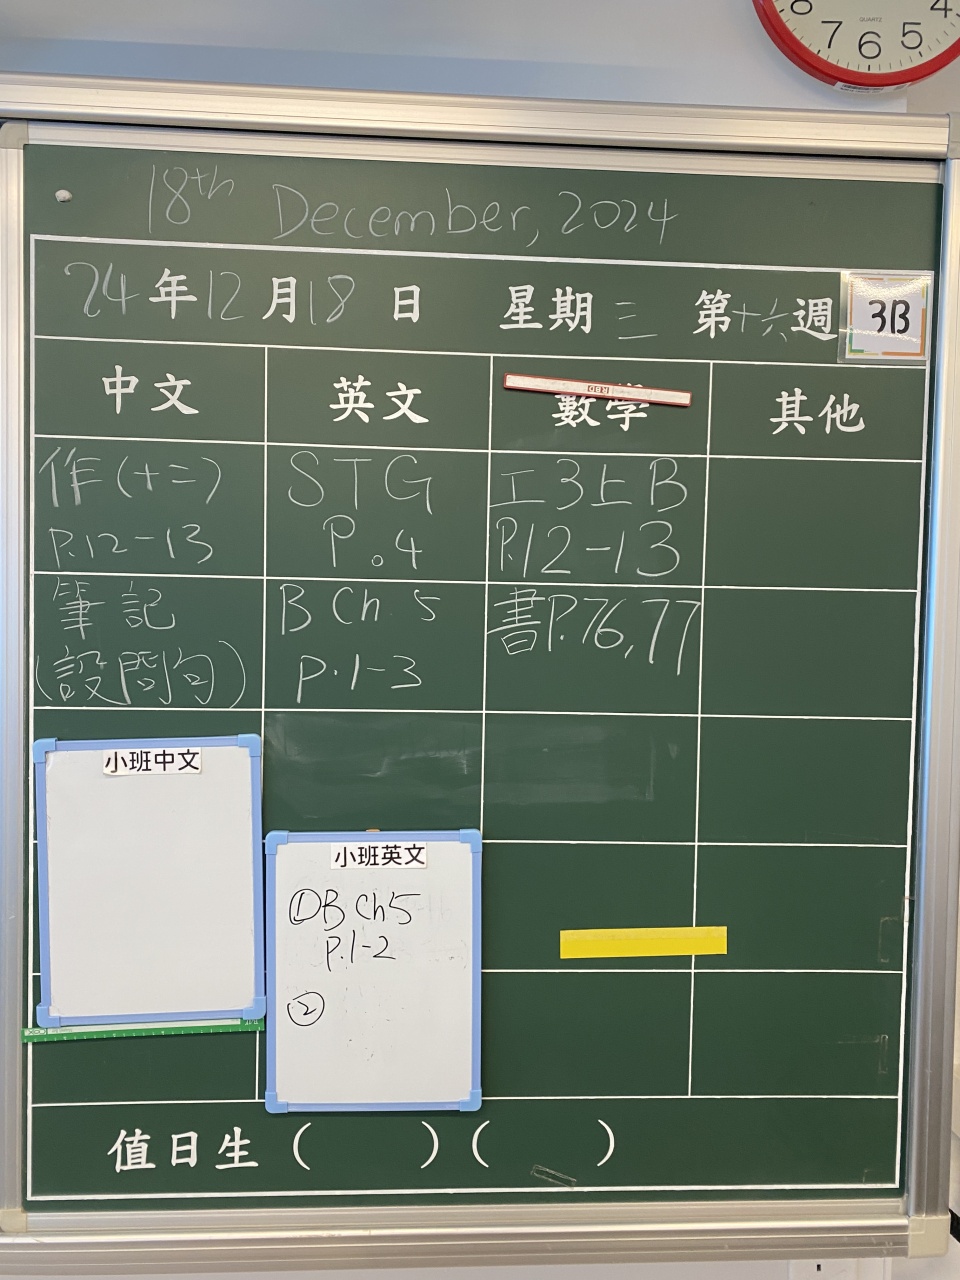 8 7 6 5 4
QUARTZ
18th December, 2024
24年12月18日 星期三 第十六週 3B
中文 英文 數學 其他
作(十二) STG 工3上B
P.12-13 P.4 P.12-13
筆記 B Ch 5 書P.76,77
(設問句) p.1-3
小班中文
小班英文
①B Ch5
p.1-2
②
值日生( )( )